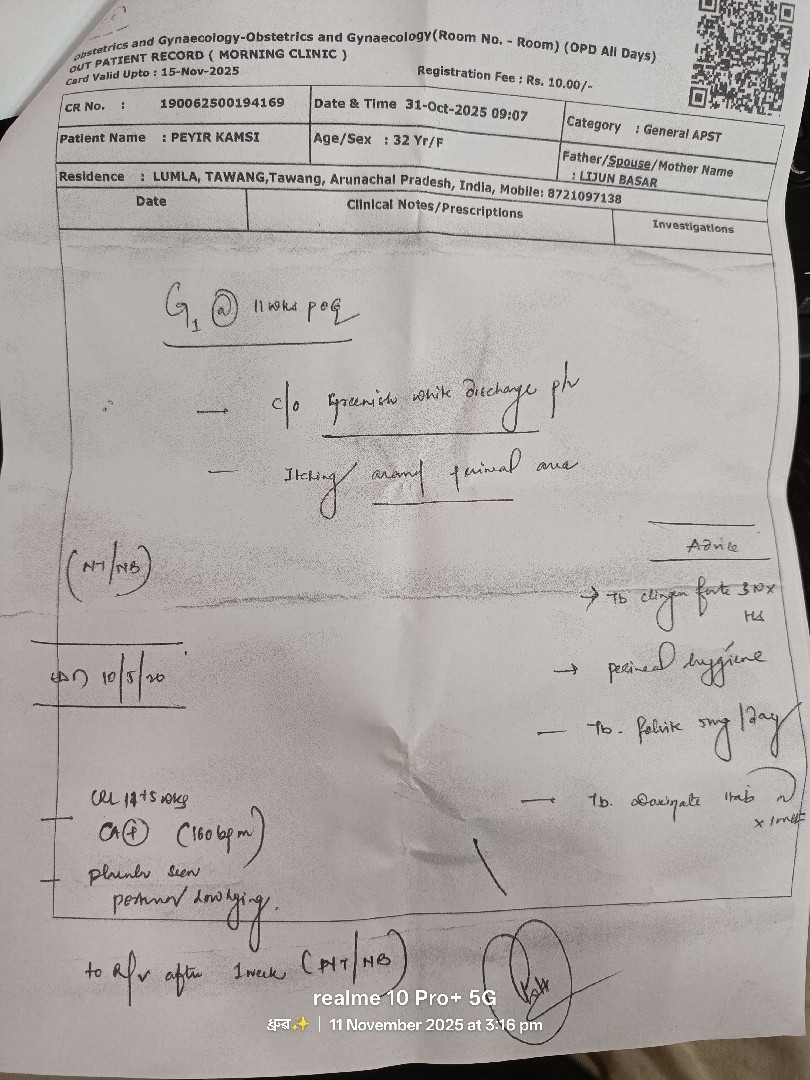 Obstetrics and Gynaecology-Obstetrics and Gynaecology(Room No. - Room) (OPD All Days)
OUT PATIENT RECORD ( MORNING CLINIC )
Card Valid Upto : 15-Nov-2025
Registration Fee : Rs. 10.00/-
CR No. : 190062500194169
Date & Time 31-Oct-2025 09:07
Category : General APST
Patient Name : PEYIR KAMSI
Age/Sex : 32 Yr/F
Father/Spouse/Mother Name : LIJUN BASAR
Residence : LUMLA, TAWANG,Tawang, Arunachal Pradesh, India, Mobile: 8721097138
Date
Clinical Notes/Prescriptions
Investigations
G1 @ 11 wks POG
→ c/o Greenish white discharge p/v
— Itching around perineal area
(NT/NB)
10/5/20
CRL
CA + (160 bpm)
— seen
lowlying.
to R/v after 1 week (NT/NB)
Advice
→ Tb forte
HS
→ perineal hygiene
— Tb. 5mg/day
— Tb. 1 tab
realme 10 Pro+ 5G
ধ্রুব✨ | 11 November 2025 at 3:16 pm